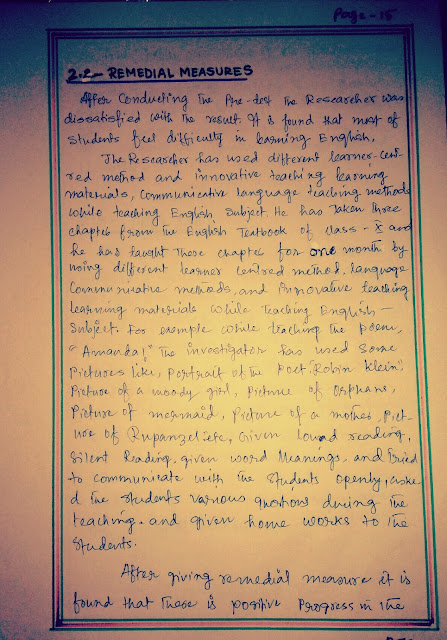 Page - 15
2.2 - REMEDIAL MEASURES
After Conducting The Pre-test The Researcher was
dissatisfied with the result. It is found that most of
Students feel difficulty in learning English.
The Researcher has used different learner-cent-
red method and innovative teaching learning
materials, Communicative language teaching methods
while teaching English Subject. He has Taken Three
chapters from the English Textbook of class - X and
he has taught These chapters for one month by
using different learner centred method, language
Communicative methods, and Innovative teaching
learning materials while Teaching English -
Subject. For example while teaching the poem,
"Amanda!" The investigator has used some
Pictures like, Portrait of the Poet "Robin Klein",
Picture of a moody girl, Picture of Orphans,
Picture of mermaid, Picture of a mother, Pict-
ure of Rupanzel etc, Given loud reading,
Silent Reading, given word Meanings, and tried
to communicate with the Students openly, aske
d the Students various questions during the
teaching. and given home works to The
Students.
After giving remedial measure it is
found that There is positive Progress in The